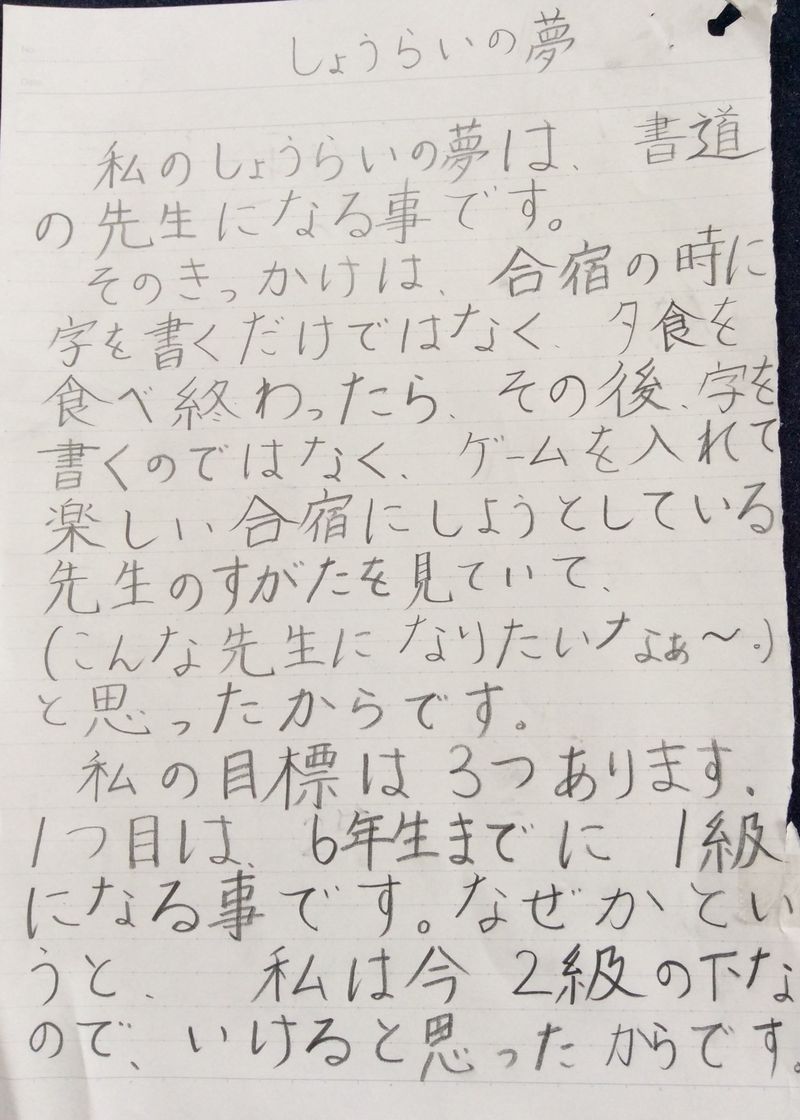 しょうらいの夢
私のしょうらいの夢は、書道
の先生になる事です。
そのきっかけは、合宿の時に
字を書くだけではなく、夕食を
食べ終わったら、その後、字を
書くのではなく、ゲームを入れて
楽しい合宿にしようとしている
先生のすがたを見ていて、
(こんな先生になりたいなぁ〜。)
と思ったからです。
私の目標は3つあります、
1つ目は、6年生までに1級
になる事です。なぜかとい
うと、私は今2級の下な
ので、いけると思ったからです。